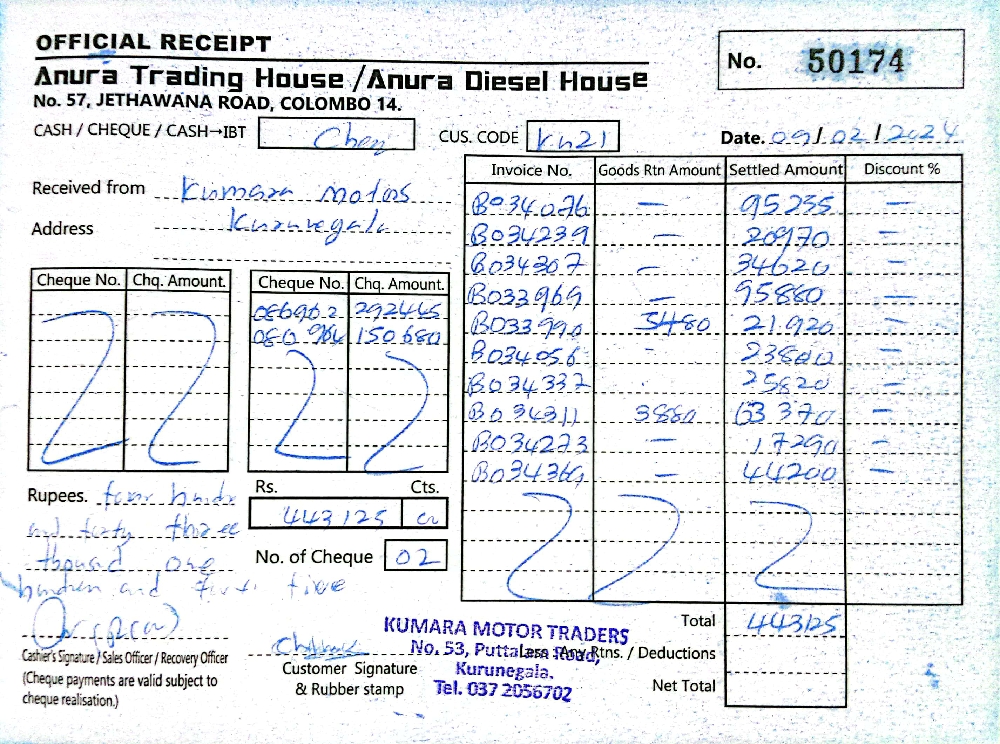 OFFICIAL RECEIPT
No. 50174
Anura Trading House / Anura Diesel House
No. 57, JETHAWANA ROAD, COLOMBO 14.
CASH / CHEQUE / CASH→IBT Cheq CUS. CODE Ku21 Date. 09/02/2024
Received from Kumara Motors
Address Kurunegala
Invoice No. Goods Rtn Amount Settled Amount Discount %
B034076 — 95235 —
B034239 — 20970 —
B034307 — 34620 —
B033969 — 95880 —
B033990 5480 21920 —
B034056 23800 —
B034337 25820 —
B034311 3880 63370 —
B034273 — 17290
B034369 — 44200 —
Cheque No. Chq. Amount. Cheque No. Chq. Amount.
086962 292445
150680
Rupees. four hundr
and forty three
thousand one
hundren and five
Rs. Cts.
443125
No. of Cheque 02
Total 443125
Less Any Rtns. / Deductions
Net Total
Cashier's Signature / Sales Officer / Recovery Officer
(Cheque payments are valid subject to
cheque realisation.)
Customer Signature
& Rubber stamp
KUMARA MOTOR TRADERS
No. 53, Puttalam Road,
Kurunegala.
Tel. 037 2056702